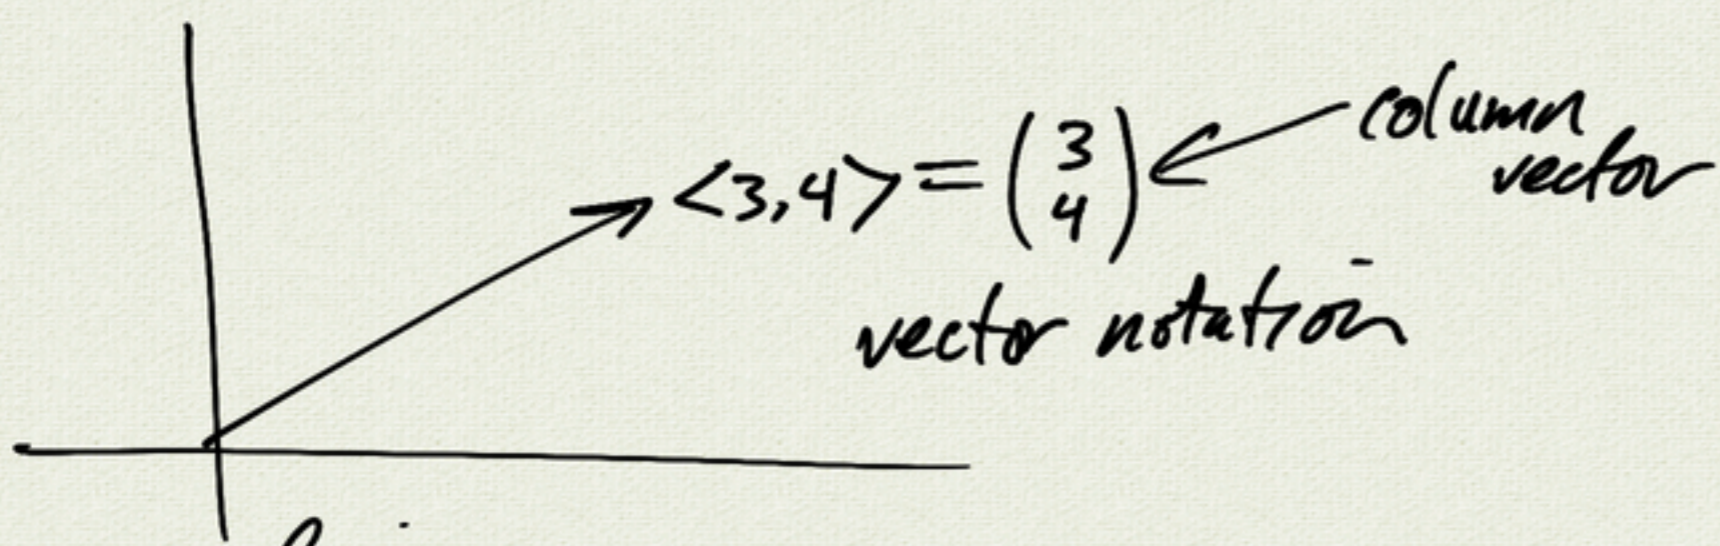 <3,4> = (3 4) column vector
vector notation